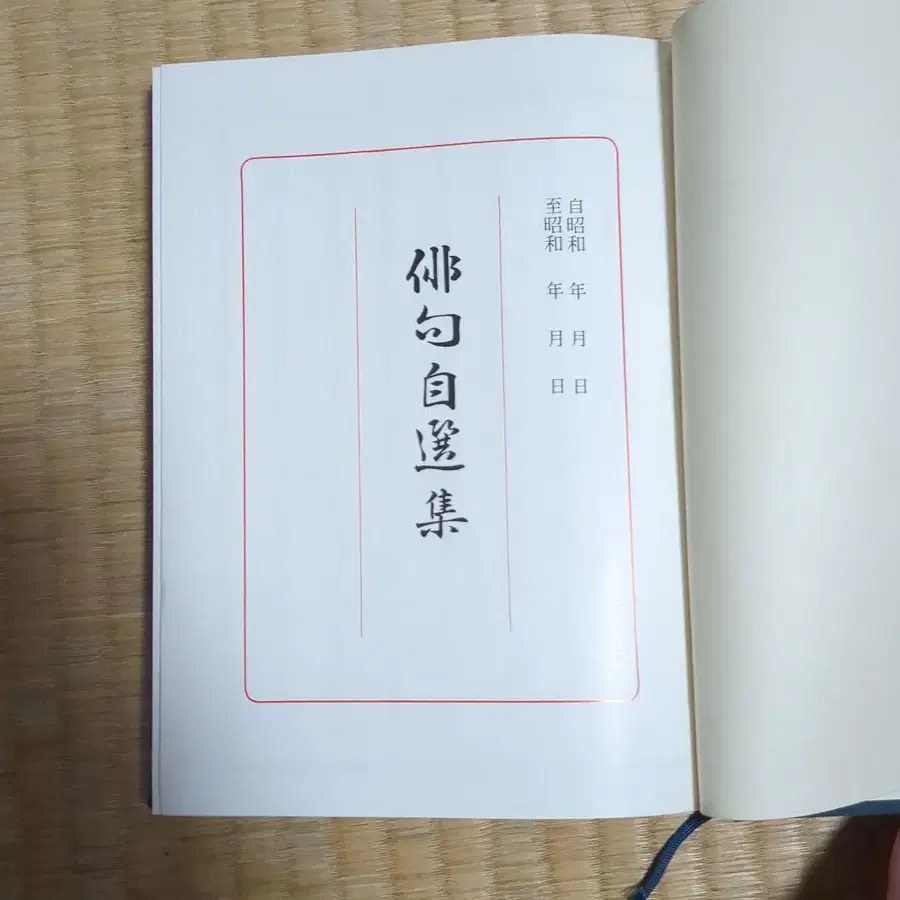 自昭和 年 月 日
至昭和 年 月 日
俳句自選集